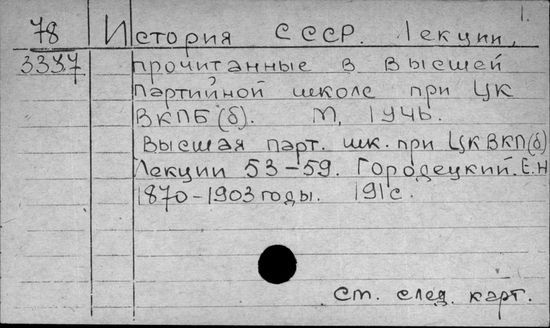 1.
78 История СССР. Лекции,
3337 прочитанные в высшей
партийной школе при ЦК
ВКПБ(б). М, 194Ь.
Высшая парт. шк. при ЦК ВКП(б)
Лекции 53-59. Городецкий. Е.Н
1870-1903 годы. 191с.
Ст. след. карт.